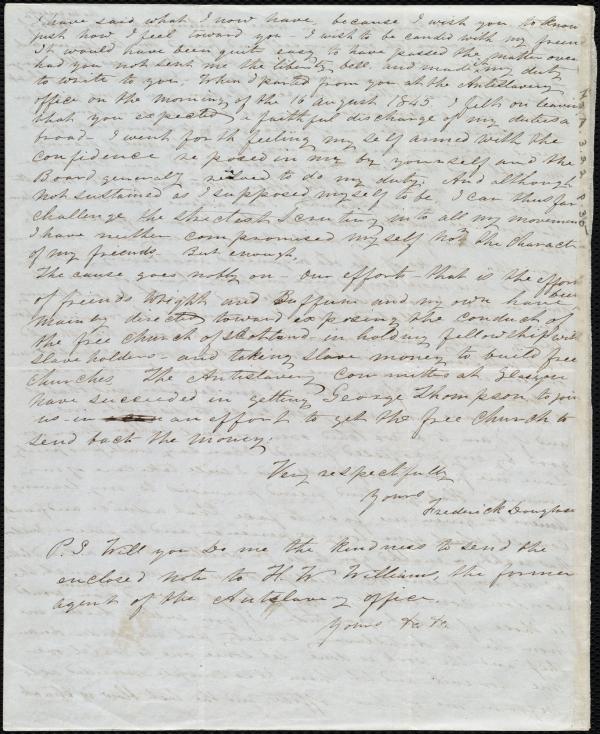 I have said what I now have, because I wish you to know
just how I feel toward you. I wish to be candid with my friend
It would have been quite easy to have passed the matter over
had you not sent me the liberty bell. and made it my duty
to write to you. When I parted from you at the Antislavery
office on the morning of the 16 august 1845. I felt on leaving
that you expected a faithful discharge of my duties a
broad - I went forth feeling my self armed with the
confidence reposed in me by yourself and the
Board generally resolved to do my duty. And although
not sustained as I supposed myself to be, I can thus far
challenge the strictest scrutiny into all my movements
I have neither compromised myself nor the character
of my friends. But enough.
The cause goes nobly on - our efforts that is the efforts
of friends Wright and Buffum and my own have been
mainly directed toward exposing the conduct of
the free church of Scotland in holding fellowship with
slave holders - and taking slave money to build free
churches. The Antislavery Committee at Glasgow
have succeeded in getting George Thompson to join
us - in an effort to get the free church to
send back the money.
Very respectfully
Yours
Frederick Douglass
P.S. Will you Do me the kindness to send the
enclosed note to H. W Williams, the former
agent of the Antislavery office.
Yours &c &c